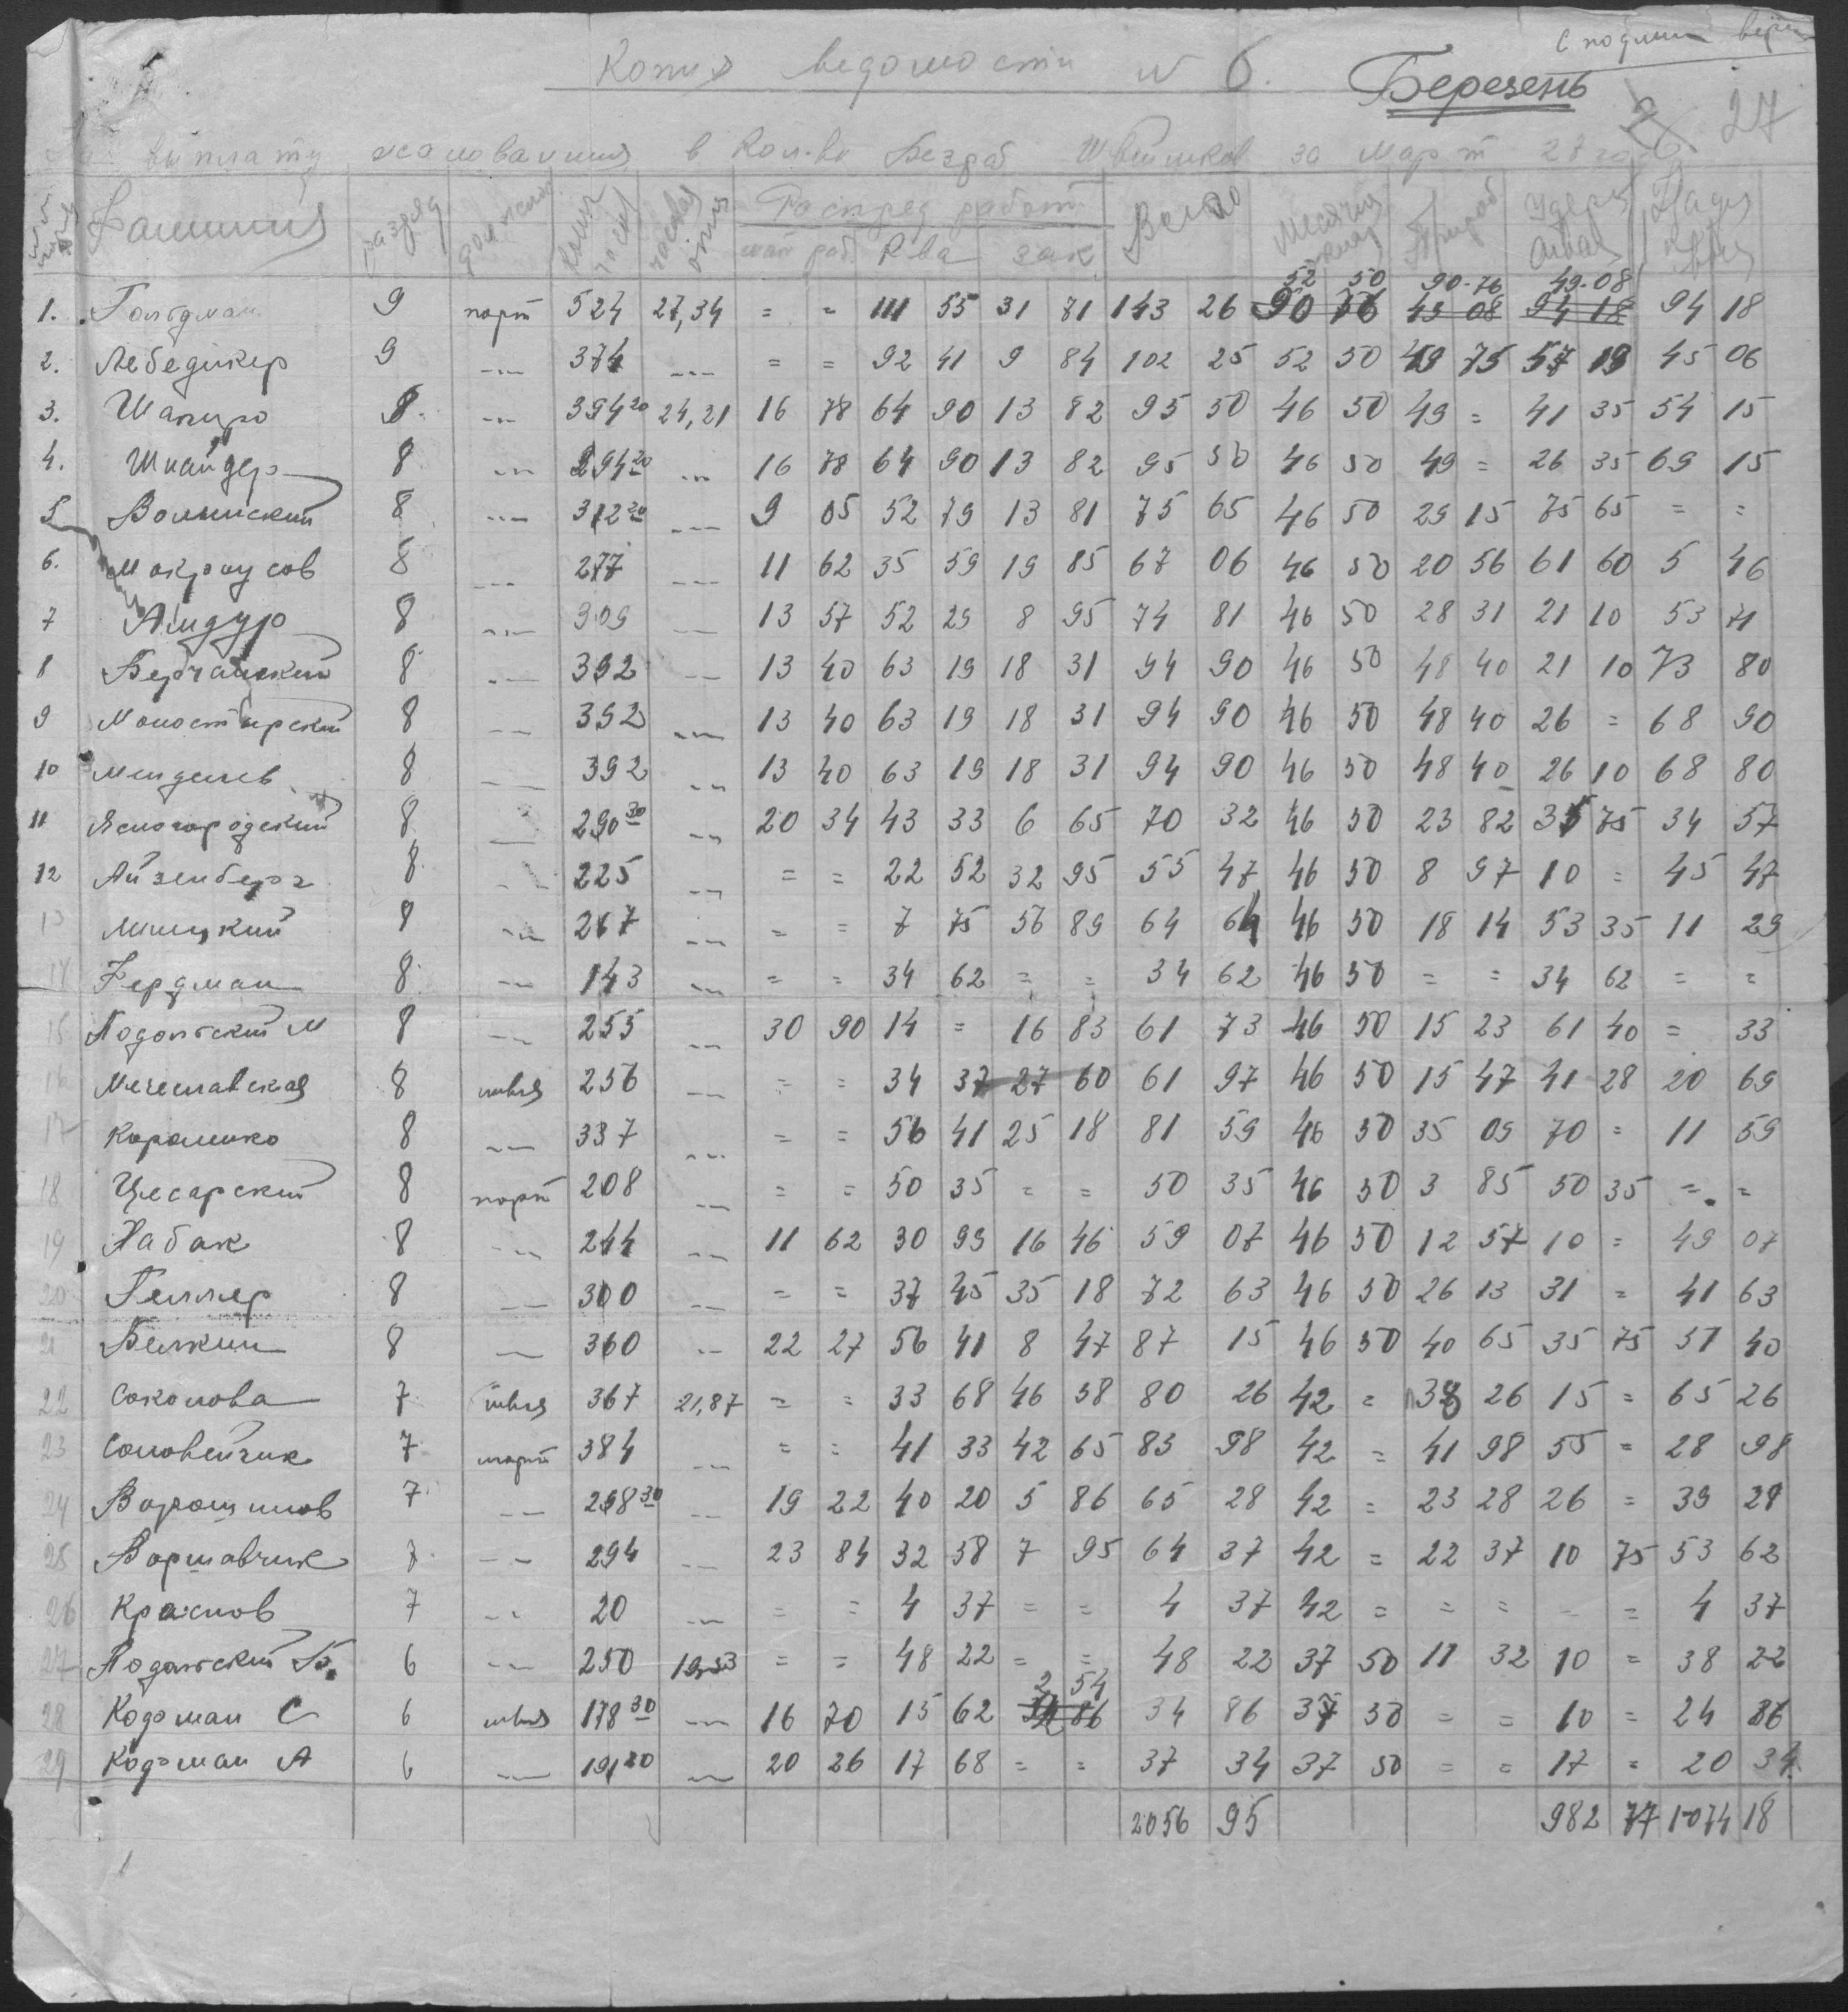 С подлин верн
Копия ведомости № 6. Березень
27
На выплату жалования в Кол-ве Безраб Швейников за март 27 года
Фамилия разряд должност Колич час часовая Распред работ Всего Месячн Прираб Удерж На
мат раб Рва зак
52 50 90-76 49-08
1. Гольдман 9 порт 524 27,34 = = 111 55 31 71 143 26 90 76 43 08 94 18 94 18
2. Лебедикер 9 -"- 374 -"- = = 92 41 9 84 102 25 52 50 49 75 57 19 45 06
3. Шапиро 8 -"- 394 20 24,21 16 78 64 90 13 82 95 50 46 50 49 = 41 35 54 15
4. Шнайдер 8 -"- 394 20 -"- 16 78 64 90 13 82 95 50 46 50 49 = 26 35 69 15
5 Волынский 8 -"- 312 20 -"- 9 05 52 79 13 81 75 65 46 50 29 15 75 65 = =
6. Мокроусов 8 -"- 277 -"- 11 62 35 59 19 85 67 06 46 50 20 56 61 60 5 46
7 Амдур 8 -"- 309 -"- 13 57 52 29 8 95 74 81 46 50 28 31 21 10 53 71
8 Бердчайский 8 -"- 392 -"- 13 40 63 19 18 31 94 90 46 50 48 40 21 10 73 80
9 Моностырский 8 -"- 392 -"- 13 40 63 19 18 31 94 90 46 50 48 40 26 = 68 90
10 Мендслев 8 -"- 392 -"- 13 40 63 19 18 31 94 90 46 50 48 40 26 10 68 80
11 Ясногородский 8 -"- 290 30 -"- 20 34 43 33 6 65 70 32 46 50 23 82 35 75 34 57
12 Айзенберг 8 -"- 225 -"- = = 22 52 32 95 55 47 46 50 8 97 10 = 45 47
13 Минцкий 8 -"- 267 -"- = = 7 75 56 89 64 64 46 50 18 14 53 35 11 29
14 Фердман 8 -"- 143 -"- = = 34 62 = = 34 62 46 50 = = 34 62 = =
15 Подольский М 8 -"- 255 -"- 30 90 14 = 16 83 61 73 46 50 15 23 61 40 = 33
16 Мечеславская 8 швея 256 -"- = = 34 37 27 60 61 97 46 50 15 47 41 28 20 69
17 Королико 8 -"- 337 -"- = = 56 41 25 18 81 59 46 50 35 09 70 = 11 59
18 Цесарский 8 порт 208 -"- = = 50 35 = = 50 35 46 50 3 85 50 35 = =
19 Хабак 8 -"- 244 -"- 11 62 30 99 16 46 59 07 46 50 12 57 10 = 49 07
20 Геллер 8 -"- 300 -"- = = 37 45 35 18 72 63 46 50 26 13 31 = 41 63
21 Белкин 8 -"- 360 -"- 22 27 56 41 8 47 87 15 46 50 40 65 35 75 51 40
22 Соколова 7 швея 367 21,87 = = 33 68 46 58 80 26 42 = 38 26 15 = 65 26
23 Соловейчик 7 порт 384 -"- = = 41 33 42 65 83 98 42 = 41 98 55 = 28 98
24 Ворошилов 7 -"- 298 30 -"- 19 22 40 20 5 86 65 28 42 = 23 28 26 = 39 28
25 Воршавчик 7 -"- 294 -"- 23 84 32 58 7 95 64 37 42 = 22 37 10 75 53 62
26 Краснов 7 -"- 20 -"- = = 4 37 = = 4 37 42 = = = = = 4 37
27 Подольский Б. 6 -"- 250 19,53 = = 48 22 = = 48 22 37 50 11 32 10 = 38 22
2 54
28 Кодоман С 6 швея 178 30 -"- 16 70 15 62 34 86 34 86 37 50 = = 10 = 24 86
29 Кодоман А 6 -"- 191 20 -"- 20 26 17 68 = = 37 34 37 50 = = 17 = 20 34
2056 95 982 77 1074 18